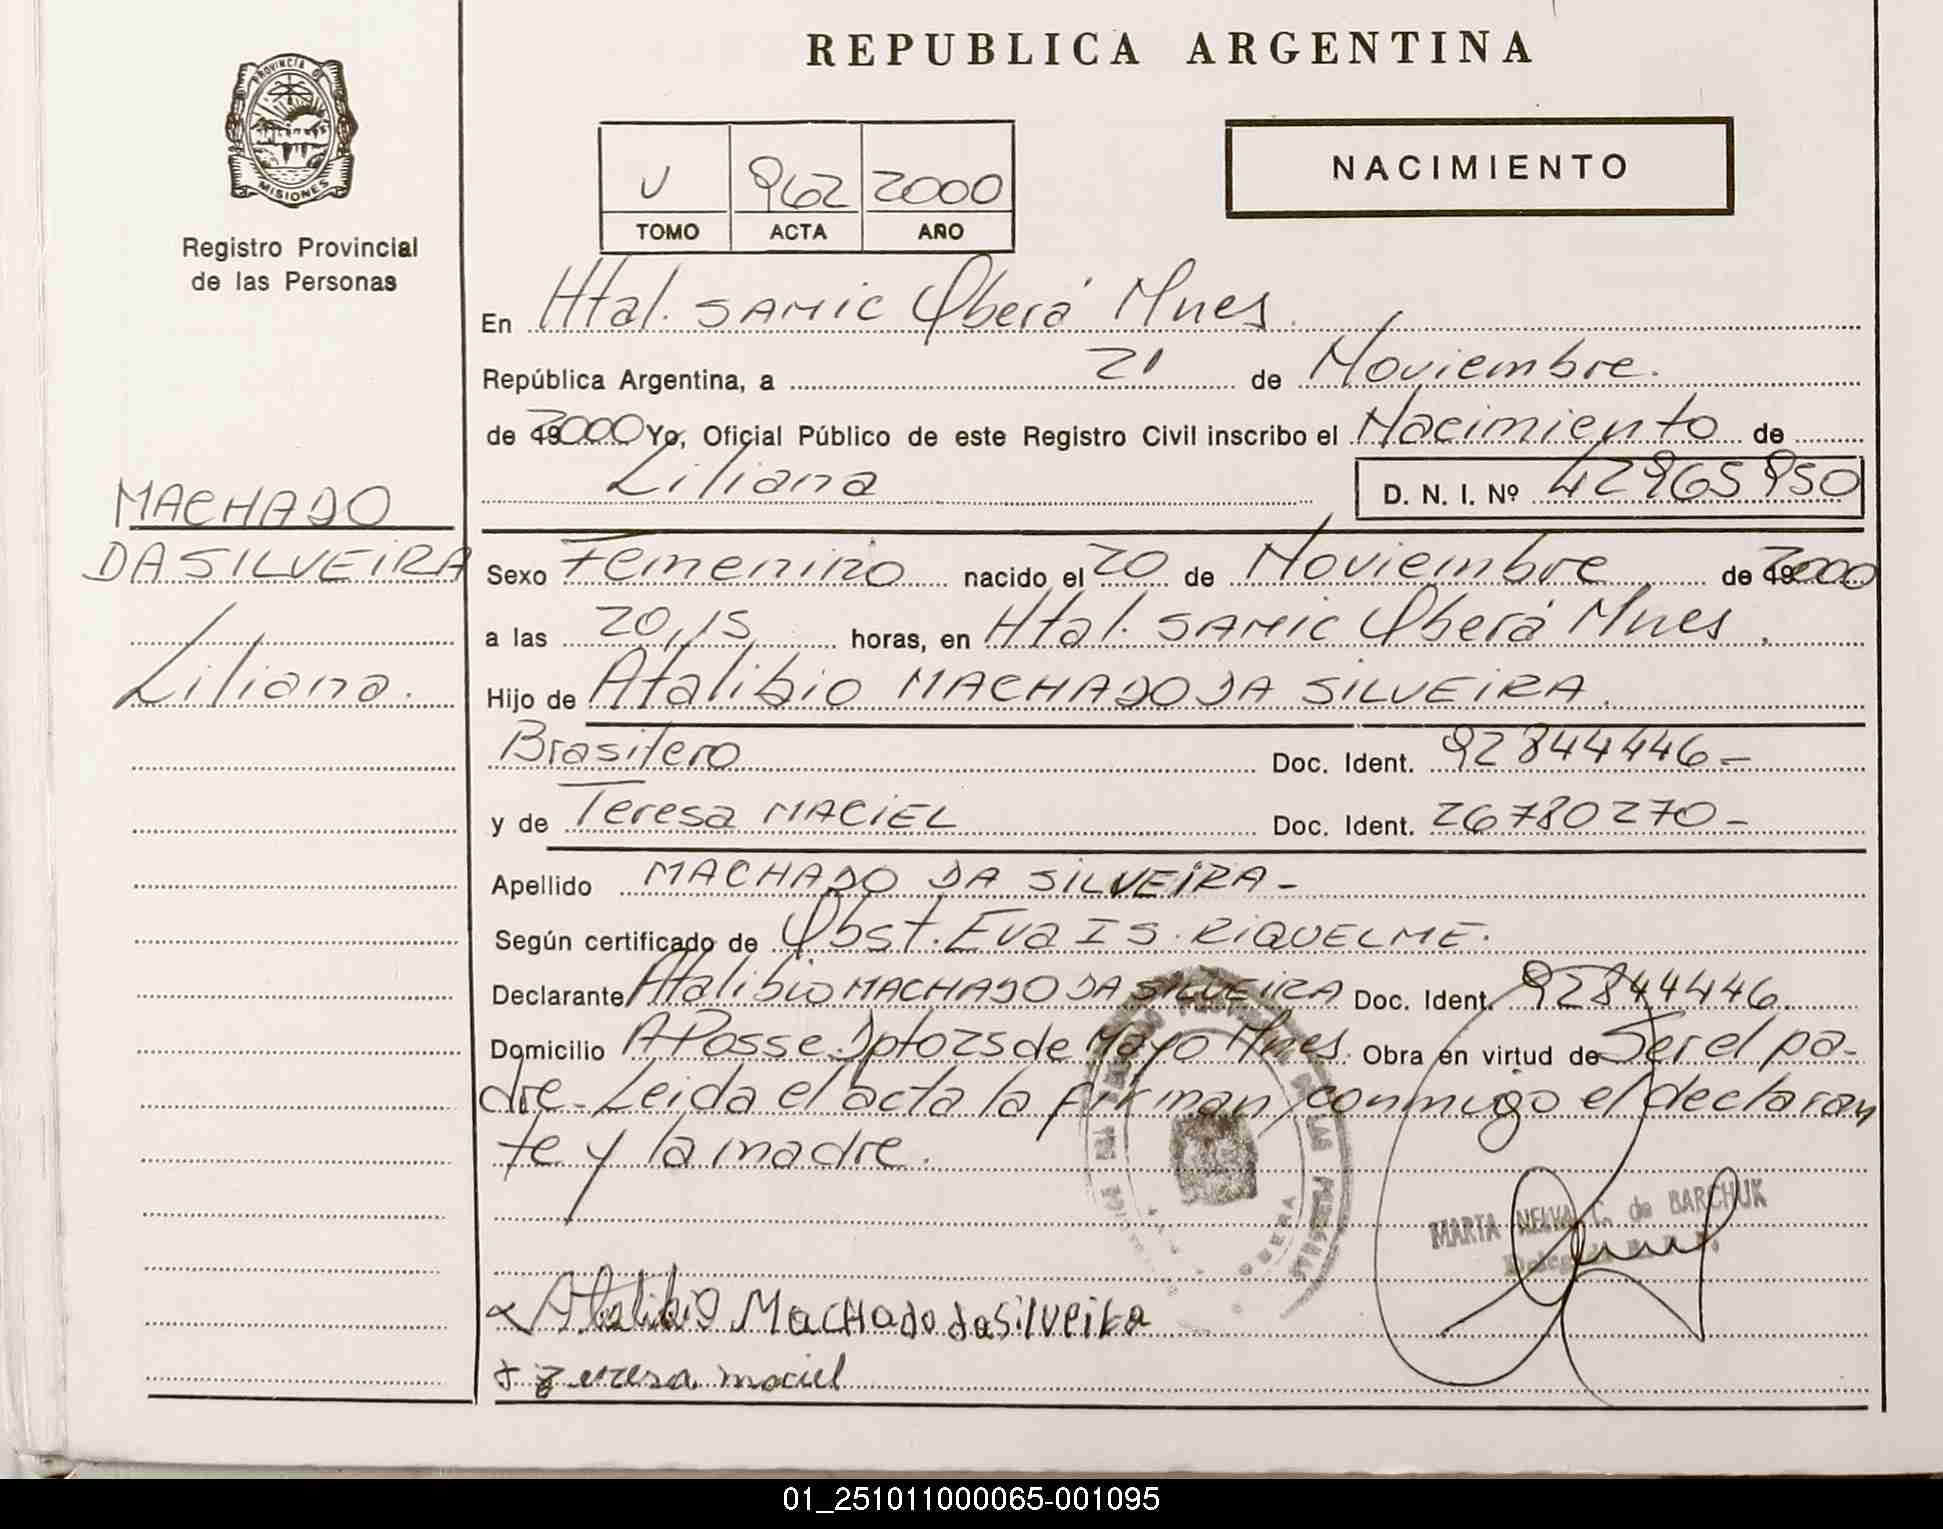 REPUBLICA ARGENTINA
PROVINCIA DE
MISIONES
Registro Provincial
de las Personas
U 962 2000
TOMO ACTA AÑO
NACIMIENTO
En Htal. SAMIC Oberá Mnes.
República Argentina, a 21 de Noviembre.
de 2000 Yo, Oficial Público de este Registro Civil inscribo el Nacimiento de
Liliana D. N. I. Nº 42965950
MACHADO
DA SILVEIRA
Liliana.
Sexo Femenino nacido el 20 de Noviembre de 2000
a las 20,15 horas, en Htal. SAMIC Oberá Mnes.
Hijo de Atalibio MACHADO DA SILVEIRA.
Brasilero Doc. Ident. 92844446-
y de Teresa MACIEL Doc. Ident. 26780270-
Apellido MACHADO DA SILVEIRA-
Según certificado de Obst. Eva IS. RIQUELME.
Declarante Atalibio MACHADO DA SILVEIRA Doc. Ident. 92844446.
Domicilio APosse. Dpto 25 de Mayo Mnes. Obra en virtud de Ser el pa-
dre- Leida el acta la firman conmigo el declaran
te y la madre.
MARTA NELVA C. de BARCHUK
OBERA
Atalibio Machado da Silveira
Teresa maciel
01_251011000065-001095